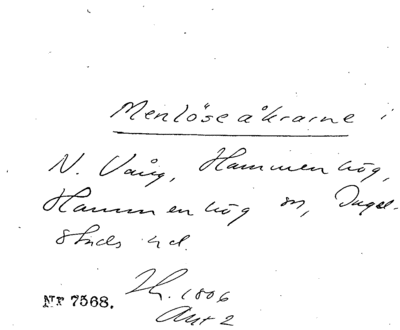 Menlöseåkrarne i
N. Vång, Hammenhög,
Hammenhög sn, Ingel-
stads hd.
Nr 7568.
1806
Akt 2